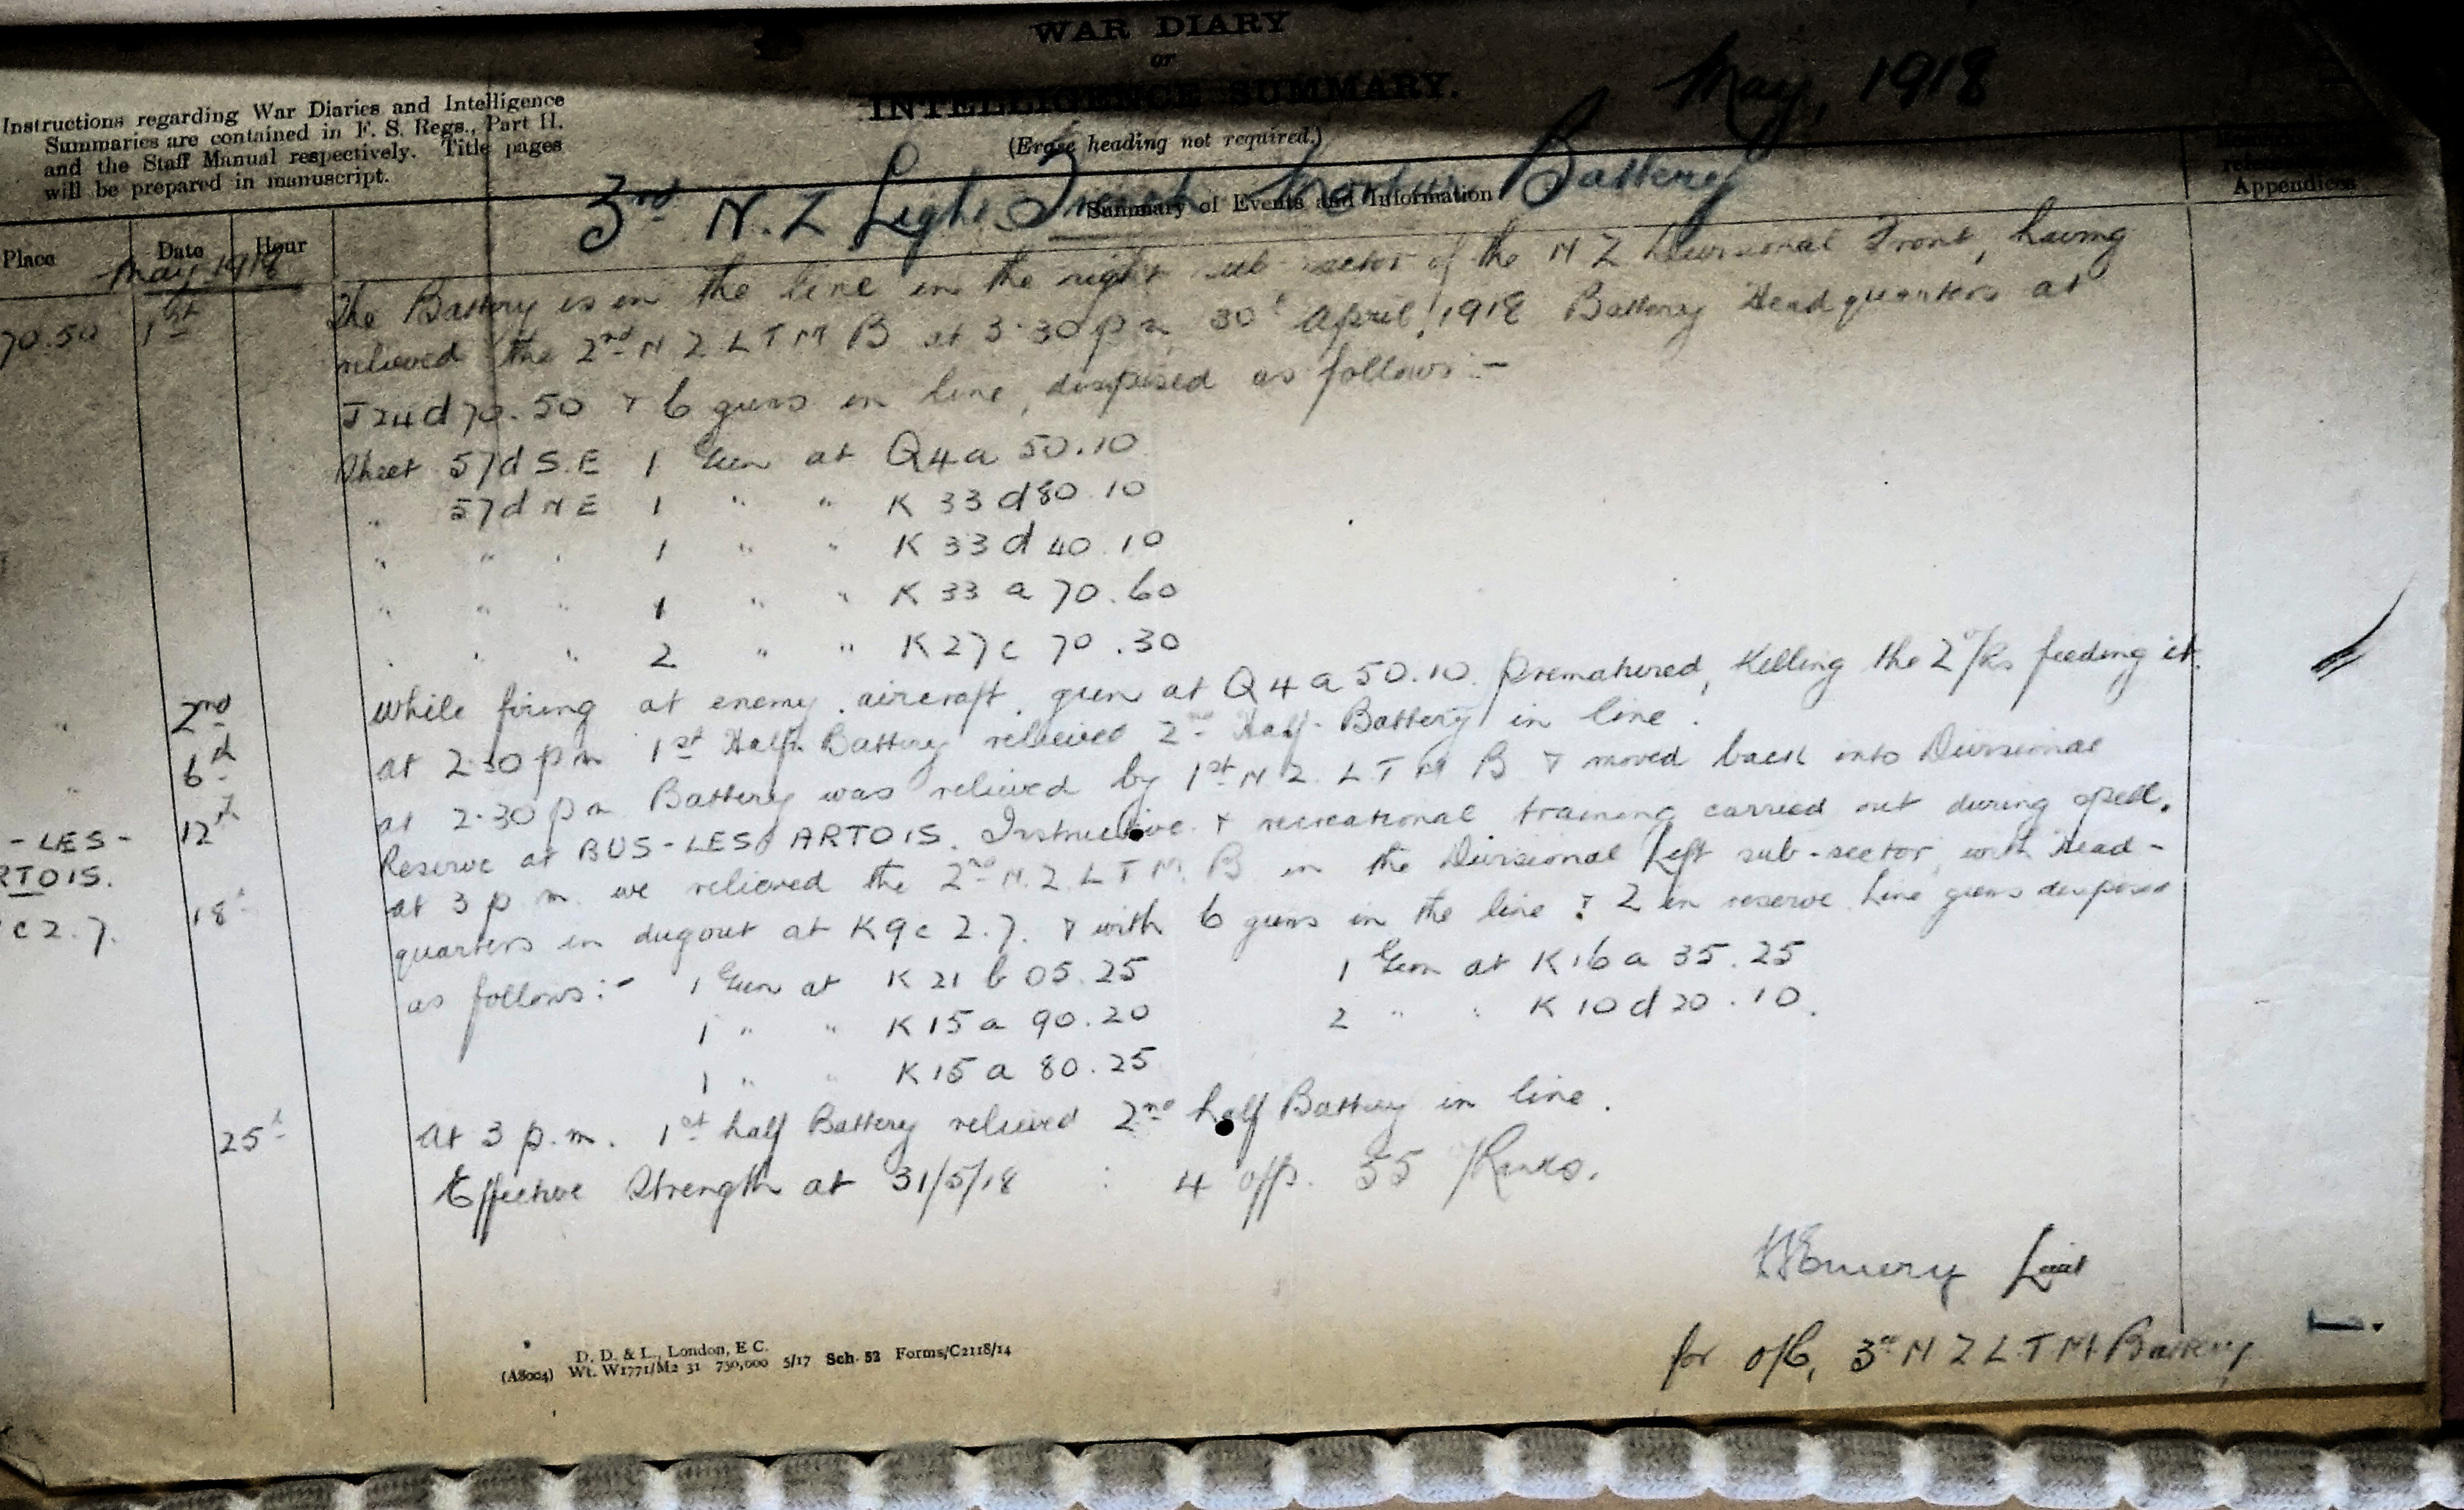 WAR DIARY
or
INTELLIGENCE SUMMARY.
(Erase heading not required.)
May, 1918
Instructions regarding War Diaries and Intelligence
Summaries are contained in F. S. Regs., Part II.
and the Staff Manual respectively. Title pages
will be prepared in manuscript.
3rd N.Z Light Trench Mortar Battery
Summary of Events and Information
Appendices
Place Date Hour
May 1918
70.50 1st The Battery is in the line in the right sub-sector of the N Z Divisional Front, having
relieved the 2nd N Z L T M B at 3.30 p m 30th April, 1918 Battery Headquarters at
J24d 70.50 & 6 guns in line, disposed as follows:-
Sheet 57d S.E 1 Gun at Q4a 50.10
" 57d N E 1 " " K 33 d 80.10
" " " 1 " " K 33 d 40.10
" " " 1 " " K 33 a 70.60
" " " 2 " " K27c 70.30
" 2nd while firing at enemy aircraft, gun at Q4a 50.10. prematured, killing the 2 O/Rs feeding it.
" 6th at 2.30 p m 1st Half-Battery relieved 2nd Half-Battery in line.
12th at 2.30 p m Battery was relieved by 1st N Z. L T M B & moved back into Divisional
-LES- Reserve at BUS-LES ARTOIS. Instructive & recreational training carried out during spell.
RTOIS. 18th at 3 p.m. we relieved the 2nd N.Z. L T M. B in the Divisional Left sub-sector, with Head-
c 2.7. quarters in dugout at K9c 2.7. & with 6 guns in the line & 2 in reserve. Line guns disposed
as follows:- 1 Gun at K 21 b 05.25 1 Gun at K16 a 35.25
1 " " K15 a 90.20 2 " " K 10 d 20.10.
1 " " K15 a 80.25
25th At 3 p.m. 1st half Battery relieved 2nd half Battery in line.
Effective Strength at 31/5/18 : 4 off. 55 /Ranks.
Emery Lieut
for O/C, 3rd N Z L.T.M. Battery
D. D. & L., London, E C.
(A8004) Wt. W1771/M2 31 750,000 5/17 Sch. 52 Forms/C2118/14